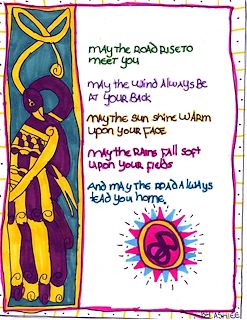 MAY THE ROAD RISE TO
MEET YOU
MAY THE WIND ALWAYS BE
AT YOUR BACK
MAY THE SUN SHINE WARM
UPON YOUR FACE
MAY THE RAINS FALL SOFT
UPON YOUR FIELDS
AND MAY THE ROAD ALWAYS
LEAD YOU HOME.